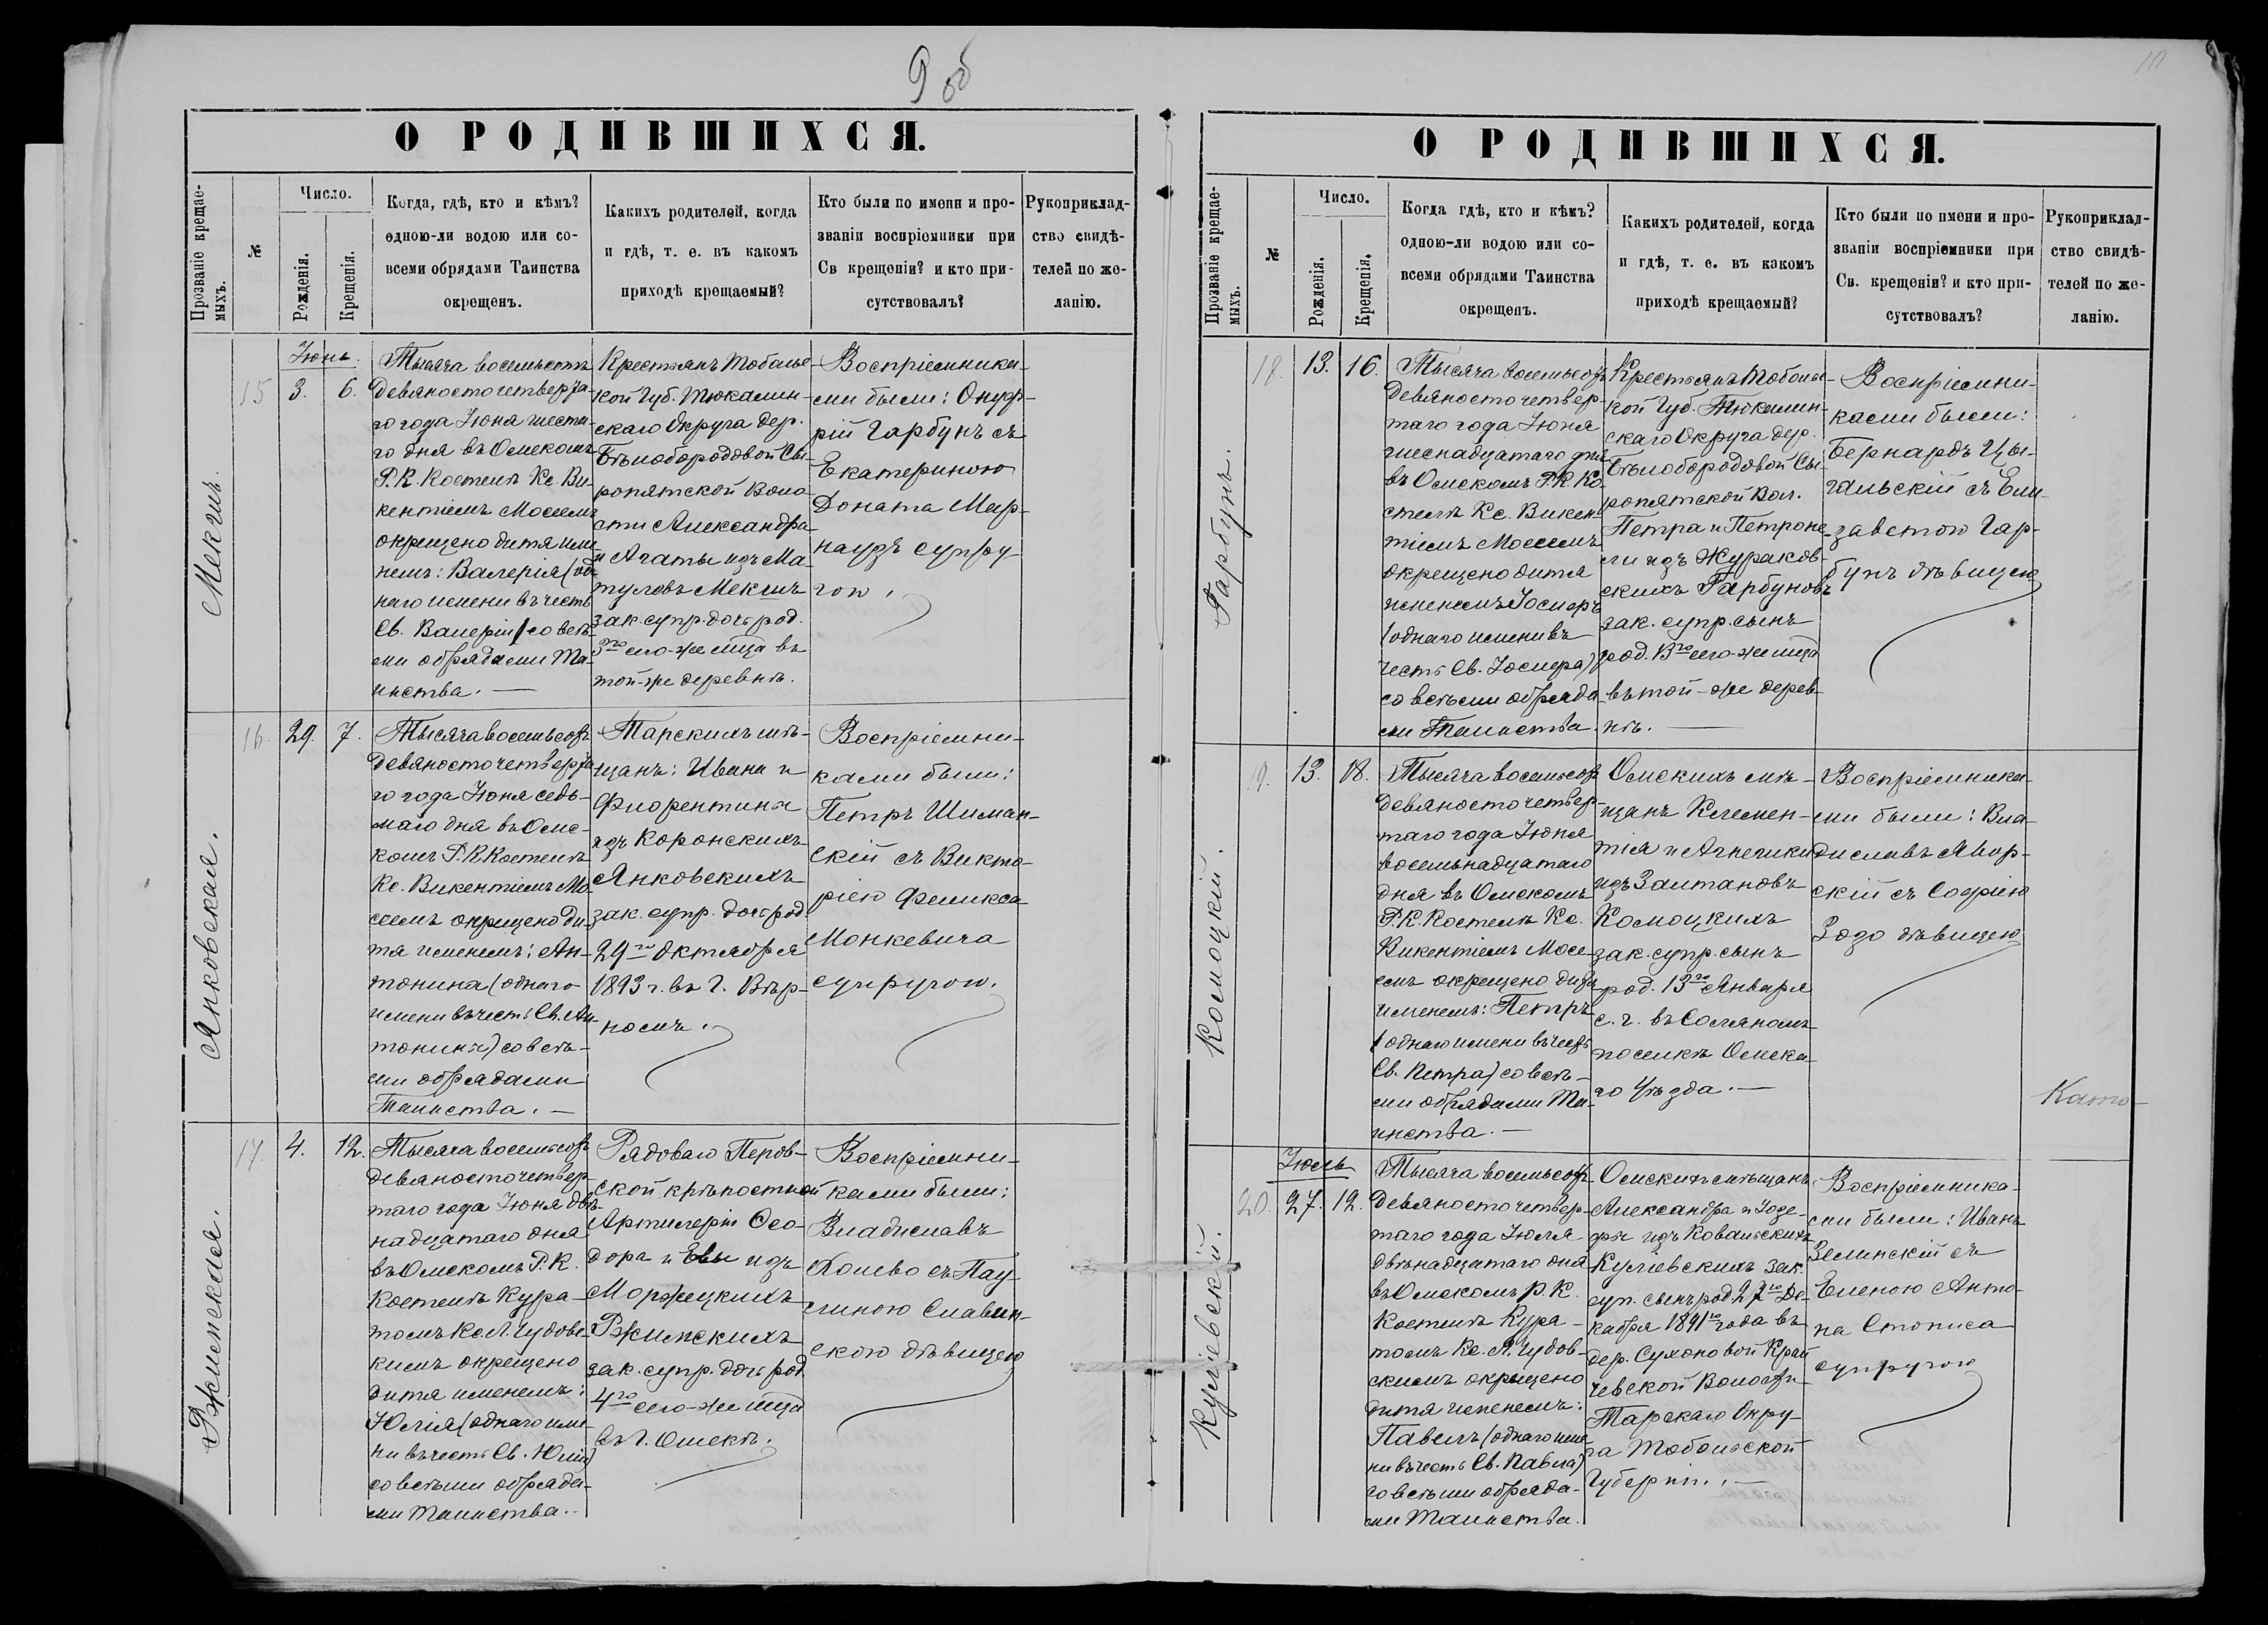 9 об
О РОДИВШИХСЯ.
Прозваніе крещае-
мыхъ.
№
Число.
Рожденія.
Крещенія.
Когда, гдѣ, кто и кѣмъ?
одною-ли водою или со-
всеми обрядами Таинства
окрещенъ.
Какихъ родителей, когда
и гдѣ, т. е. въ какомъ
приходѣ крещаемый?
Кто были по имени и про-
званіи воспріемники при
Св крещеніи? и кто при-
сутствовалъ?
Рукоприклад-
ство свидѣ-
телей по же-
ланію.
Мекшъ.
15
Іюнь.
3.
6.
Тысяча восемьсотъ
девяносто четверта-
го года Іюня шеста-
го дня въ Омскомъ
Р. К. Костелѣ Кс. Ви-
кентіемъ Мосеемъ
окрещено дитя име-
немъ: Валерія (од-
наго имени въ честь
Св. Валеріи) со всѣ-
ми обрядами Та-
инства. —
Крестьянъ Тобольс-
кой Губ. Тюкалин-
скаго Округа дер.
Бѣлобородовой Сы-
ропятской Воло-
сти Александра
и Агаты изъ Ма-
туловъ Мекшъ
зак. супр. дочь род.
3го сего-же м-ца въ
той-же деревнѣ.
Воспріемника-
ми были: Онуф-
рій Гарбунъ съ
Екатериною
Доната Мар-
наузъ супру-
гою.
Янковская.
16.
29.
7.
Тысяча восемьсотъ
девяносто четверта-
го года Іюня седь-
маго дня въ Омс-
комъ Р. К. Костелѣ
Кс. Викентіемъ Мо-
сеемъ окрещено ди-
тя именемъ: Ан-
тонина (однаго
имени въ честь Св. Ан-
тонины) со всѣ-
ми обрядами
Таинства. —
Тарскихъ мѣ-
щанъ: Ивана и
Флорентины
изъ Коронскихъ
Янковскихъ
зак. супр. дочь род.
29го Октября
1893 г. въ г. Вѣр-
номъ.
Воспріемни-
ками были:
Петръ Шиман-
скій съ Викто-
ріею Феликса
Монкевича
супругою.
Ржименская.
17.
4.
12.
Тысяча восемьсотъ
девяносто четвер-
таго года Іюня двѣ-
надцатаго дня
въ Омскомъ Р. К.
Костелѣ Кура-
томъ Кс. Л. Чудовс-
кимъ окрещено
дитя именемъ:
Юлія (однаго име-
ни въ честь Св. Юліи)
со всѣми обряда-
ми Таинства.
Рядоваго Перов-
ской крѣпостной
Артилеріи Ѳео-
дора и Евы изъ
Моржецкихъ
Ржимскихъ
зак. супр. дочь род.
4го сего-же м-ца
въ г. Омскѣ.
Воспріемни-
ками были:
Владиславъ
Холево съ Пау-
линою Славин-
скою дѣвицею
10
О РОДИВШИХСЯ.
Прозваніе крещае-
мыхъ.
№
Число.
Рожденія.
Крещенія.
Когда гдѣ, кто и кѣмъ?
одною-ли водою или со-
всеми обрядами Таинства
окрещенъ.
Какихъ родителей, когда
и гдѣ, т. е. въ какомъ
приходѣ крещаемый?
Кто были по имени и про-
званіи воспріемники при
Св. крещеніи? и кто при-
сутствовалъ?
Рукоприклад-
ство свидѣ-
телей по же-
ланію.
Гарбунъ.
18.
13.
16.
Тысяча восемьсотъ
девяносто четвер-
таго года Іюня
шеснадцатаго дня
въ Омскомъ Р. К. Ко-
стелѣ Кс. Викен-
тіемъ Мосеемъ
окрещено дитя
именемъ Іосифъ
(однаго имени въ
честь Св. Іосифа)
со всѣми обряда-
ми Таинства.
Крестьянъ Тобольс-
кой Губ. Тюкалин-
скаго Округа дер.
Бѣлобородовой Сы-
ропятской Вол.
Петра и Петроне-
ли изъ Жураков-
скихъ Гарбуновъ
зак. супр. сынъ
род. 13го сего-же м-ца
въ той-же дерев-
нѣ. —
Воспріемни-
ками были:
Бернардъ Цы-
гальскій съ Ели-
заветою Гар-
бунъ дѣвицею
Комоцкій.
19.
13.
18.
Тысяча восемьсотъ
девяносто четвер-
таго года Іюня
восемьнадцатаго
дня въ Омскомъ
Р. К. Костелѣ Кс.
Викентіемъ Мосе-
емъ окрещено дитя
именемъ: Петръ
(однаго имени въ честь
Св. Петра) со всѣ-
ми обрядами Та-
инства. —
Омскихъ мѣ-
щанъ Клемен-
тія и Агнешки
изъ Залтановъ
Комоцкихъ
зак. супр. сынъ
род. 13го Января
с. г. въ Соляномъ
поселкѣ Омска-
го Уѣзда. —
Воспріемника-
ми были: Вла-
диславъ Явор-
скій съ Софіею
Зозо дѣвицею
Като-
Кулевскій.
20.
Іюль
27.
12.
Тысяча восемьсотъ
девяносто четвер-
таго года Іюля
двѣнадцатаго дня
въ Омскомъ Р. К.
Костелѣ Кура-
томъ Кс. Л. Чудов-
скимъ окрещено
дитя именемъ:
Павелъ (однаго име-
ни въ честь Св. Павла)
со всѣми обряда-
ми Таинства.
Омскихъ мѣщанъ
Александра и Юзе-
фы изъ Ковальскихъ
Кулевскихъ зак.
суп. сынъ род. 27го Де-
кабря 1891го года въ
дер. Сухоновой Край-
чевской Волости
Тарскаго Окру-
га Тобольской
Губерніи. —
Воспріемника-
ми были: Иванъ
Зелинскій съ
Еленою Анто-
на Стописа
супругою